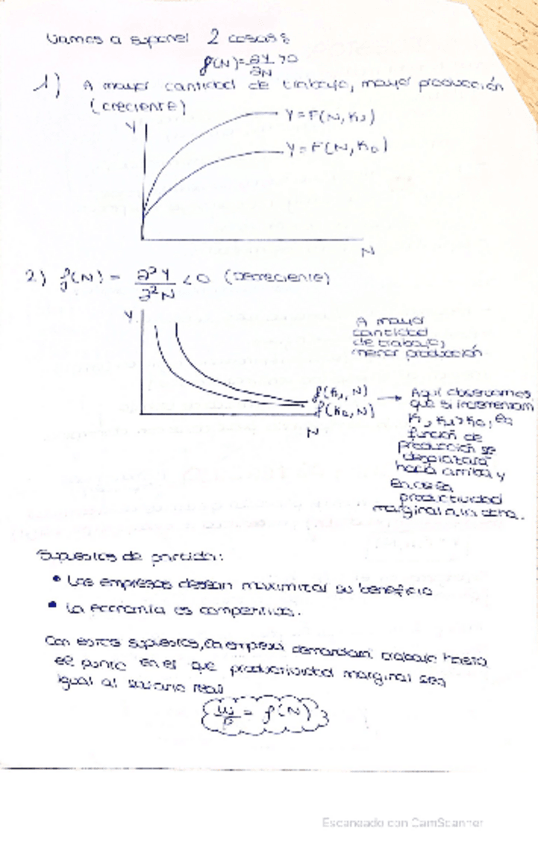 Vamos a suponer 2 cosas:
f(N)=∂Y/∂N >0
1) A mayor cantidad de trabajo, mayor producción
(creciente)
Y
Y=F(N,K₁)
Y=F(N,K₀)
N
2) f(N) = ∂²Y/∂²N <0 (Decreciente)
Y
A mayor
cantidad
de trabajo,
menor producción
f(K₁, N)
f(K₀, N)
N
Aquí observamos
que si incrementam
K, K₁>K₀, la
función de
producción se
desplazará
hacia arriba y
productividad
marginal
Supuestos de partida:
• Las empresas desean maximizar su beneficio
• La economía es competitiva.
Con estos supuestos, la empresa demandará trabajo hasta
el punto en el que productividad marginal sea
igual al salario real
W/P = f'(N)
Escaneado con CamScanner